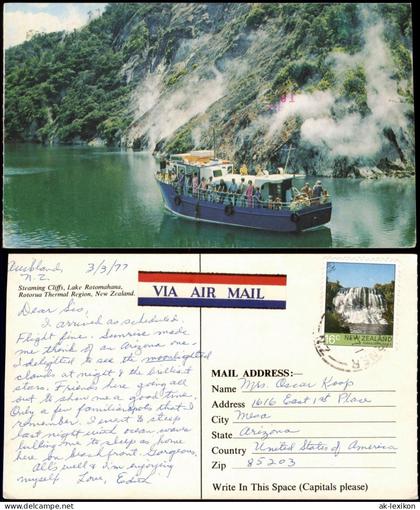 Auckland, N.Z. 3/3/77
Steaming Cliffs, Lake Rotomahana,
Rotorua Thermal Region, New Zealand.
Dear Sis,
I arrived as scheduled.
Flight fine. Sunrise made
me think of an Arizona one.
I delighted to see the moonlighted
islands at night & the brilliant
stars. Friend here going all
out to show me a good time.
Only a few familiar spots that I
remember. I went to sleep
last night with ocean waves
lulling me to sleep as home
here on beachfront. Gorgeous.
All's well & I'm enjoying
myself Love, Edith
VIA AIR MAIL
16c
NEW ZEALAND
MAIL ADDRESS:
Name Mrs. Oscar Koop
Address 1616 East 1st Place
City Mesa
State Arizona
Country United States of America
Zip 85203
Write In This Space (Capitals please)
www.ak-lexikon.de
© ak-lexikon.de